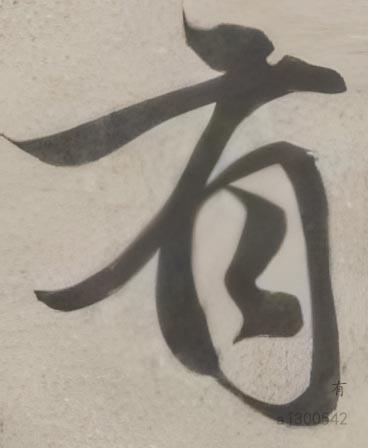 有
有
a1300542